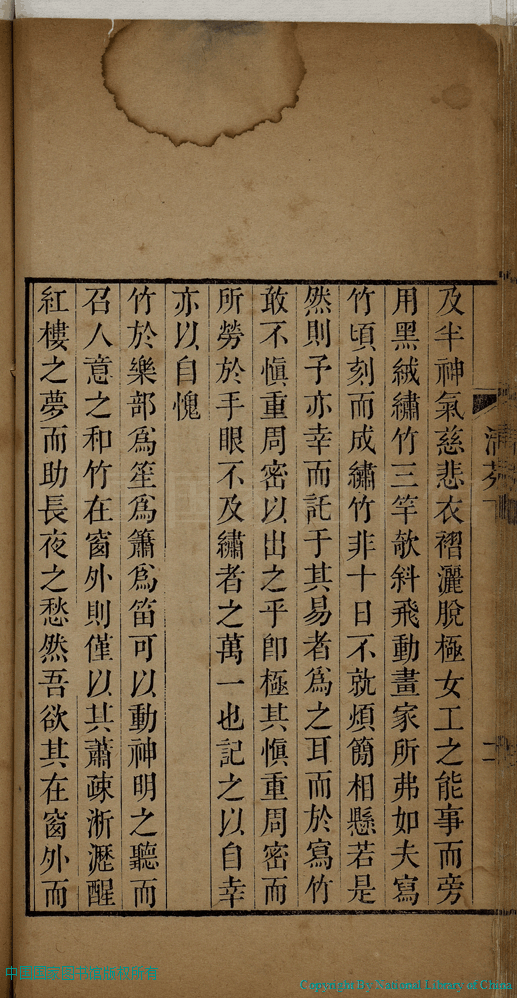 及半神氣慈悲衣褶灑脫極女工之能事而旁
用黑絨繡竹三竿欹斜飛動畫家所弗如夫寫
竹頃刻而成繡竹非十日不就煩簡相懸若是
然則予亦幸而託于其易者為之耳而於寫竹
敢不慎重周密以出之乎卽極其慎重周密而
所勞於手眼不及繡者之萬一也記之以自幸
亦以自愧
竹於樂部為笙為簫為笛可以動神明之聽而
召人意之和竹在窗外則僅以其蕭疎淅瀝醒
紅樓之夢而助長夜之愁然吾欲其在窗外而
Copyright By National Library of China